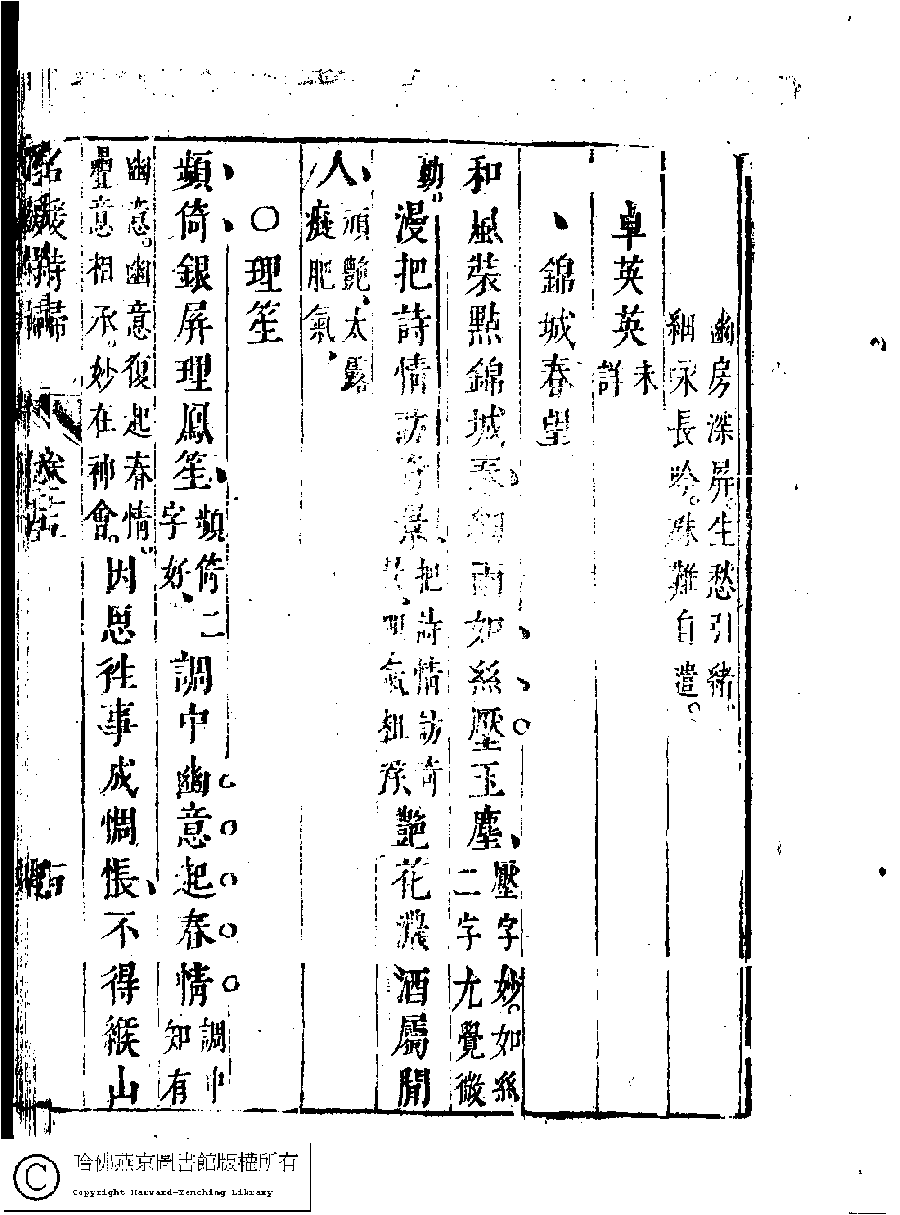 幽房深屏生愁引緒
細咏長吟。殊難自遣。
卓英英 未詳
、錦城春望
和風裝點錦城春細雨如絲壓玉塵 壓字妙。如絲二字尤覺微
動。漫把詩情訪奇景 把詩情訪奇 氣粗 艷花濃酒屬閒
人、頑艷、太露癡肥氣、
〇理笙
頻倚銀屏理鳳笙 頻倚二字好、調中幽意起春情 調中知有
幽意。幽意復起春情。疊意相承。妙在神會。因思往事成惆悵不得緱山
名媛詩歸
卷之
哈佛燕京圖書館版權所有
Copyright Harvard-Yenching Library